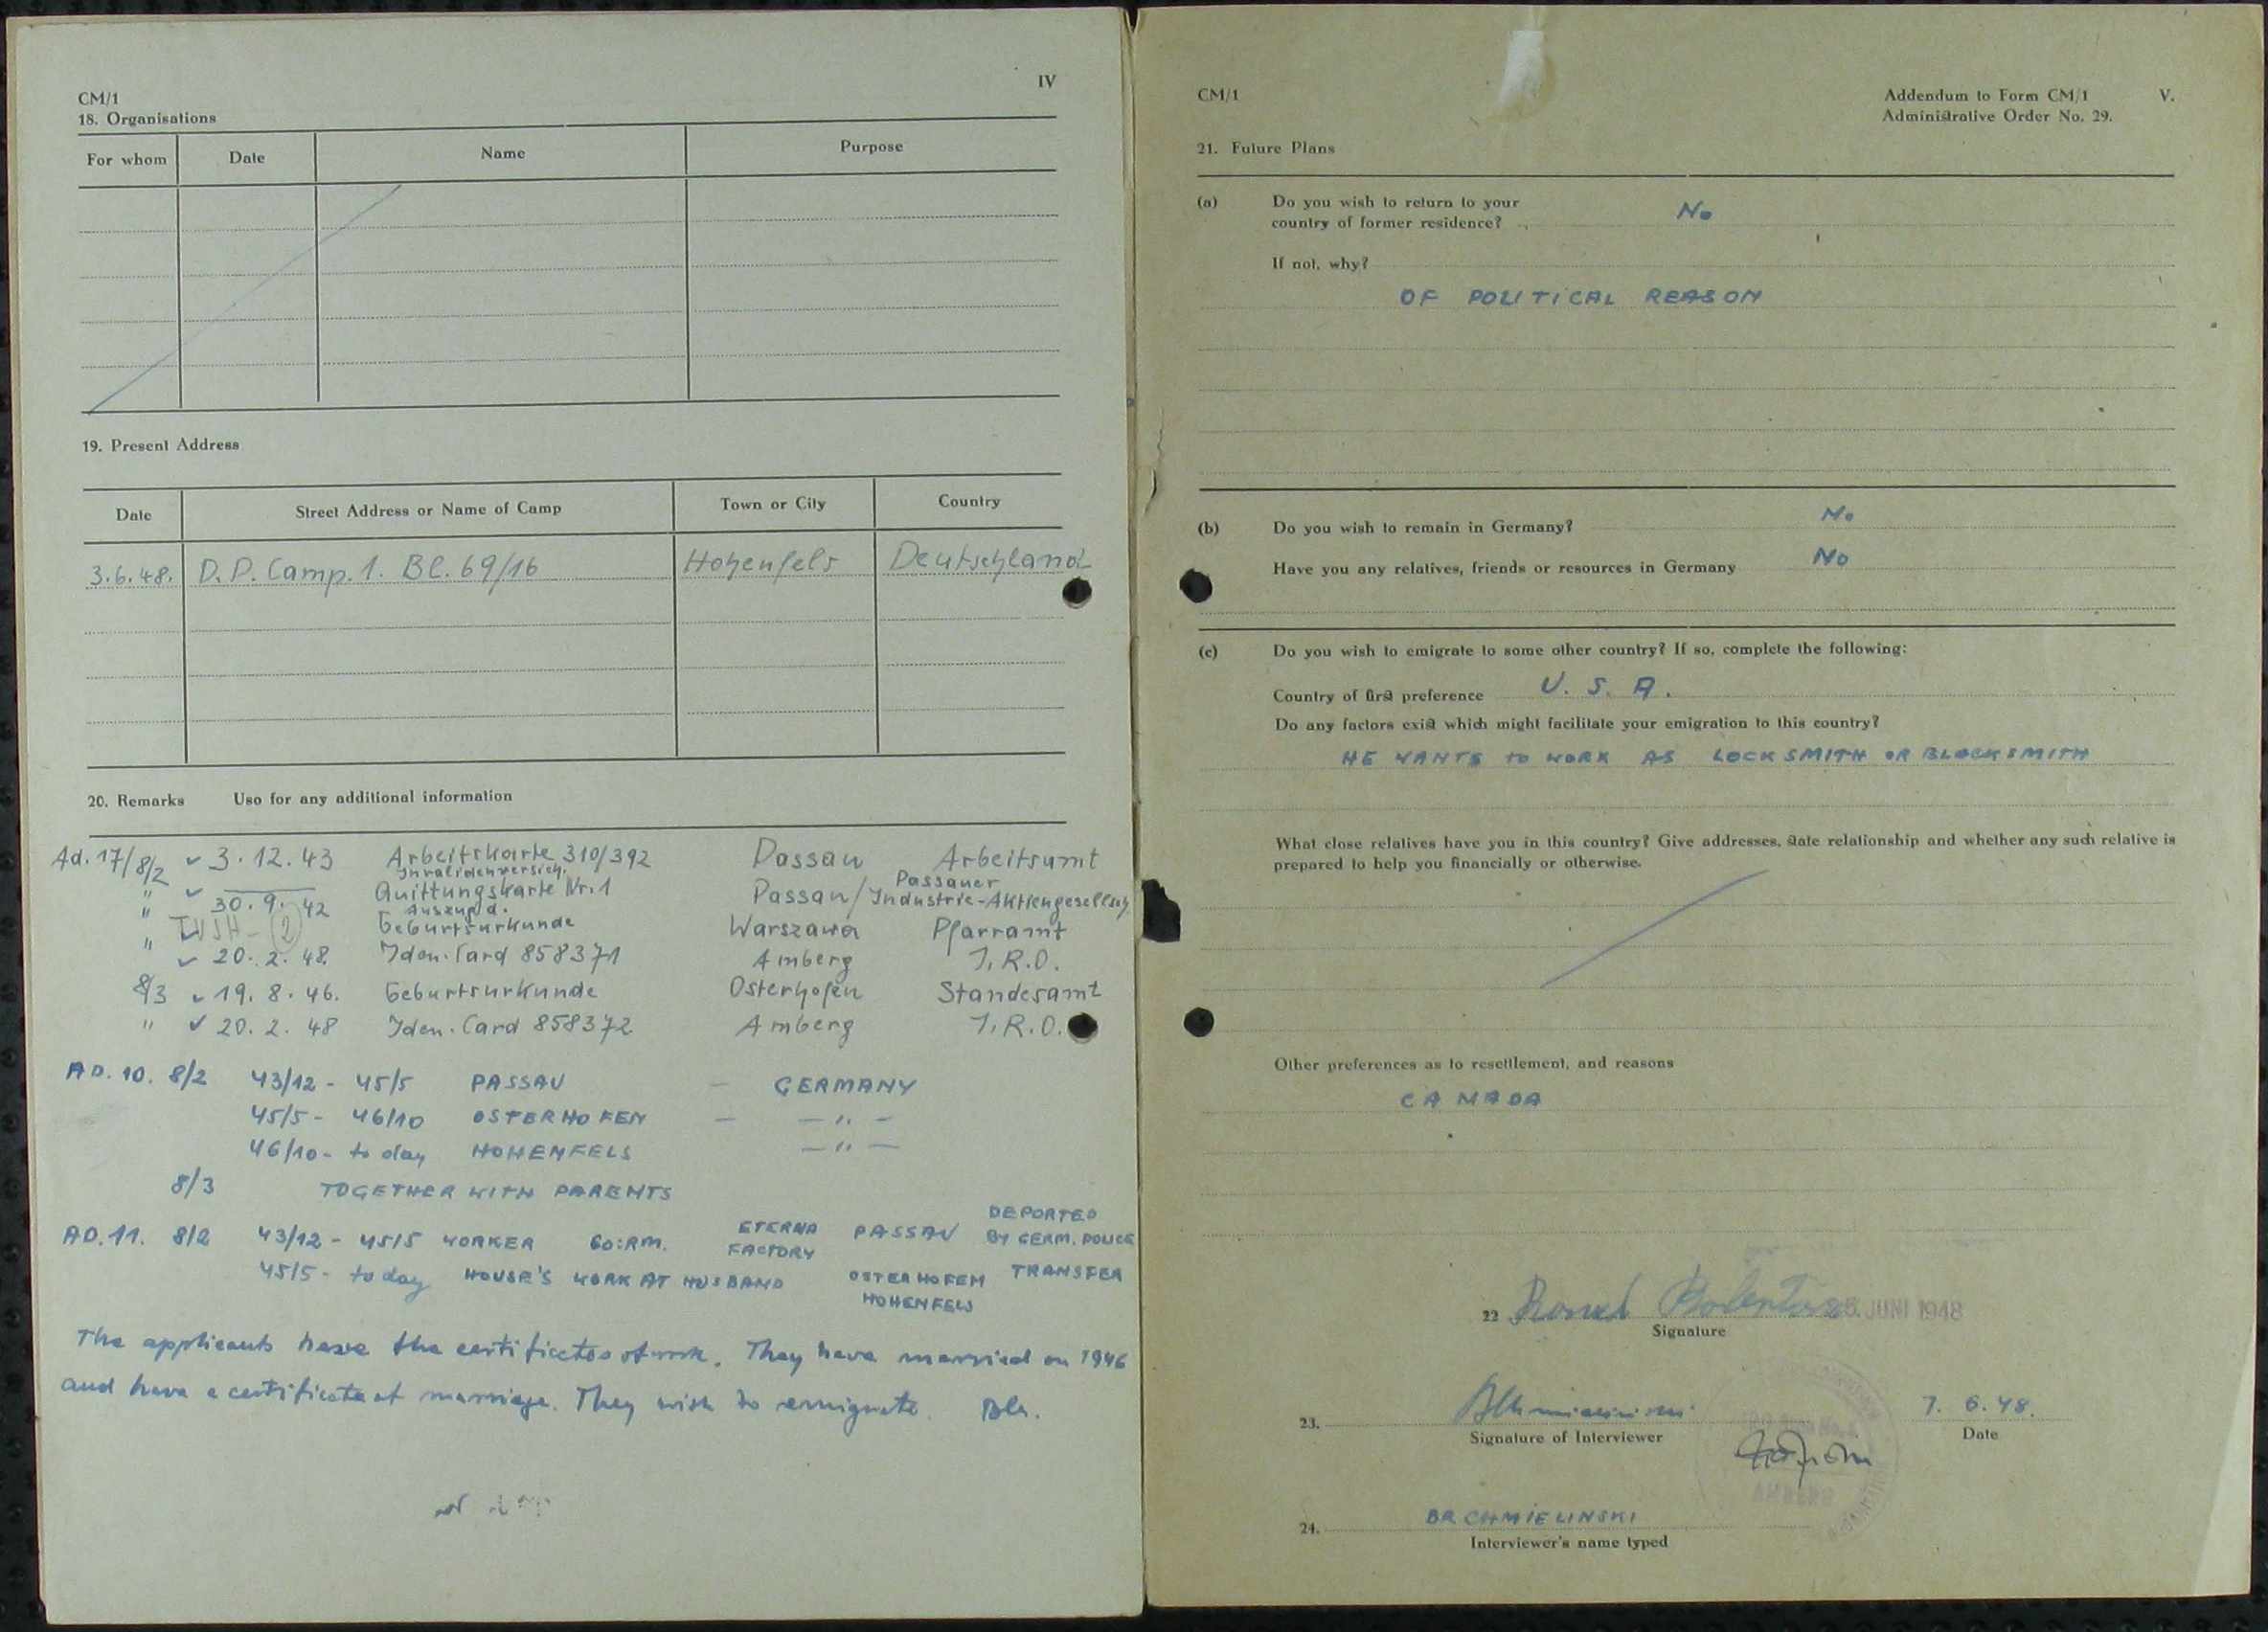 CM/1
IV
18. Organisations
For whom Date Name Purpose
19. Present Address
Date Street Address or Name of Camp Town or City Country
3.6.48. D.P. Camp. 1. Bl. 69/16 Hohenfels Deutschland
20. Remarks Use for any additional information
Ad. 17/8/2 ✓ 3.12.43 Arbeitskarte 310/392 Passau Arbeitsamt
Invalidenversich. Passauer
" ✓ Quittungskarte Nr. 1 Passau/Industrie-Aktiengesellsch
" 30.9.42 Auszug d.
" (2) Geburtsurkunde Warszawa Pfarramt
✓ 20.2.48. Iden. Card 858371 Amberg I.R.O.
8/3 ✓ 19.8.46. Geburtsurkunde Osterhofen Standesamt
" ✓ 20.2.48 Iden. Card 858372 Amberg I.R.O.
AD. 10. 8/2 43/12 - 45/5 PASSAU - GERMANY
45/5 - 46/10 OSTERHOFEN - - " -
46/10 - to day HOHENFELS - " -
8/3 TOGETHER WITH PARENTS
AD. 11. 8/2 43/12 - 45/5 WORKER 60:RM. ETERNA FACTORY PASSAU DEPORTED BY GERM. POLICE
45/5 - to day HOUSE'S WORK AT HUSBAND OSTERHOFEN HOHENFELS TRANSFER
The applicants have the certificates of work. They have married on 1946
and have a certificate of marriage. They wish to emigrate.
CM/1
Addendum to Form CM/1 V.
Administrative Order No. 29.
21. Future Plans
(a) Do you wish to return to your
country of former residence? No
If not, why?
OF POLITICAL REASON
(b) Do you wish to remain in Germany? No
Have you any relatives, friends or resources in Germany No
(c) Do you wish to emigrate to some other country? If so, complete the following:
Country of first preference U. S. A.
Do any factors exist which might facilitate your emigration to this country?
HE WANTS to WORK AS LOCKSMITH OR BLACKSMITH
What close relatives have you in this country? Give addresses, state relationship and whether any such relative is
prepared to help you financially or otherwise.
Other preferences as to resettlement, and reasons
CANADA
22 JUNI 1948
Signature
23. 7. 6. 48.
Signature of Interviewer Date
24. BR CHMIELINSKI
Interviewer's name typed